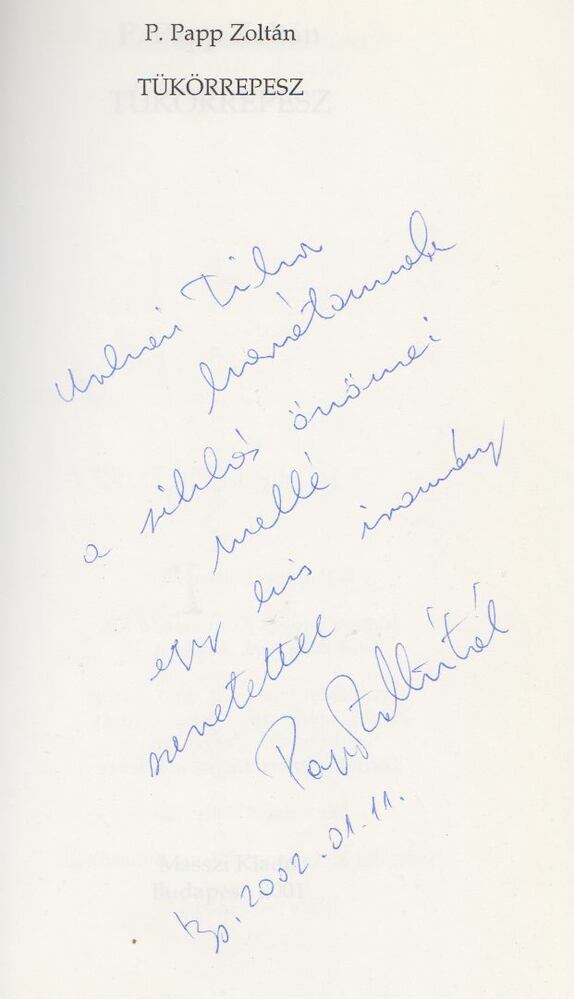 P. Papp Zoltán
TÜKÖRREPESZ
Tibor
barátomnak
a sziklás örömei
mellé
egy kis iromány
szeretettel
Papp Zoltántól
Bp. 2002.01.11.
Masszi Kiadó
Budapest, 2001